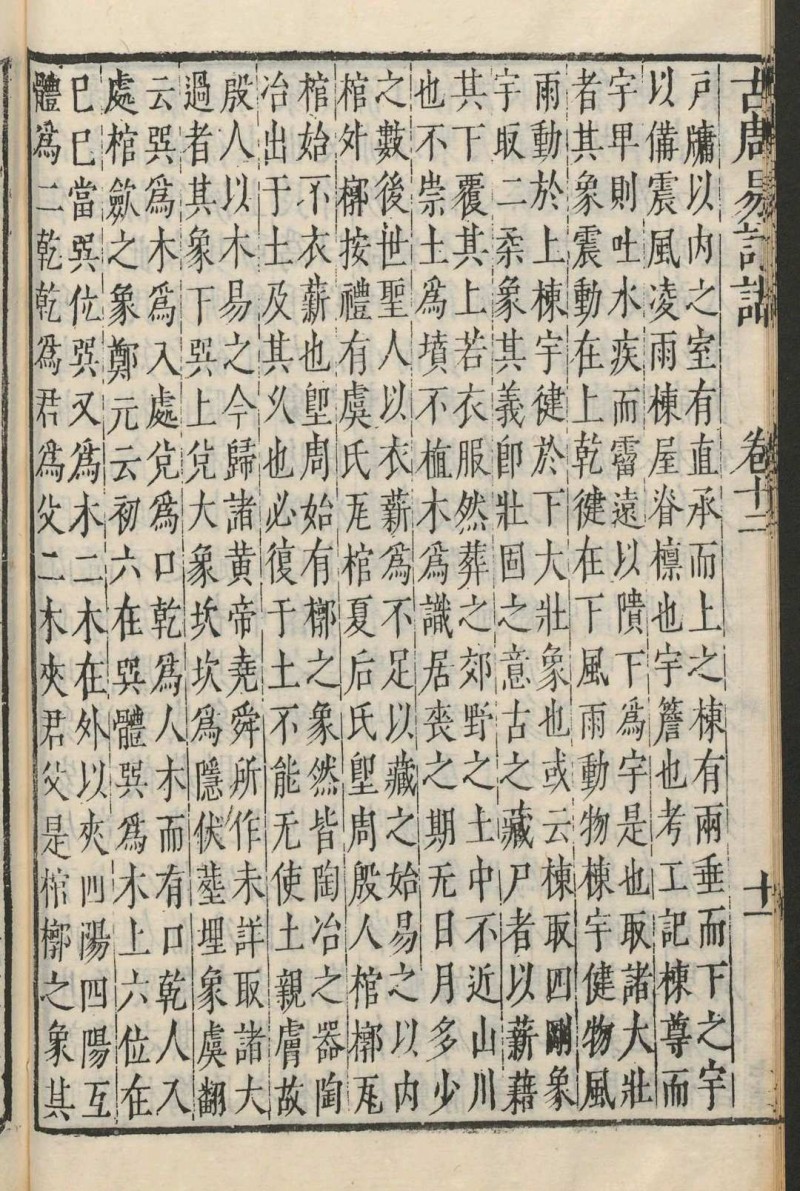 古周易訂詁　卷十二　十一
戸牖以内之室有直承而上之棟有兩垂而下之宇
以備震風凌雨棟屋脊檁也宇簷也考工記棟尊而
宇卑則吐水疾而霤遠以隤下為宇是也取諸大壯
者其象震動在上乾健在下風雨動物棟宇健物風
雨動於上棟宇健於下大壯象也或云棟取四剛象
宇取二柔象其義卽壯固之意古之藏尸者以薪藉
其下覆其上若衣服然葬之郊野之土中不近山川
也不崇土為墳不植木為識居喪之期无日月多少
之數後世聖人以衣薪為不足以藏之始易之以内
棺外槨按禮有虞氏瓦棺夏后氏堲周殷人棺槨瓦
棺始不衣薪也堲周始有槨之象然皆陶冶之器陶
冶出于土及其久也必復于土不能无使土親膚故
殷人以木易之今歸諸黄帝堯舜所作未詳取諸大
過者其象下巽上兌大象坎坎為隱伏塟埋象虞翻
云巽為木為入處兌為口乾為人木而有口乾人入
處棺歛之象鄭元云初六在巽體巽為木上六位在
巳巳當巽位巽又為木二木在外以夾四陽四陽互
體為二乾乾為君為父二木夾君父是棺槨之象其